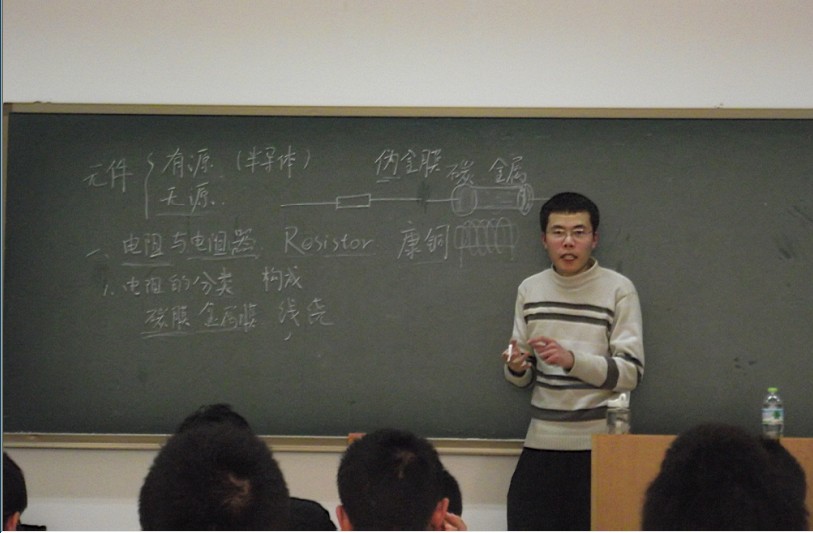 元件 { 有源 (半导体)
无源
伪金膜 碳 金属
一、电阻与电阻器 Resistor 康铜
1. 电阻的分类 构成
碳膜 金属膜 线绕